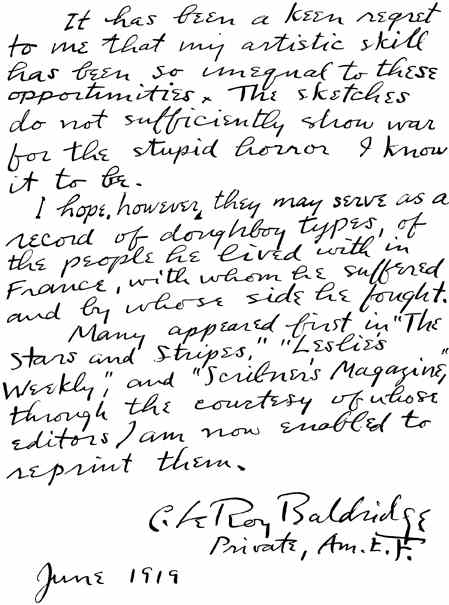 It has been a keen regret
to me that my artistic skill
has been so unequal to these
opportunities. The sketches
do not sufficiently show war
for the stupid horror I know
it to be.
I hope, however, they may serve as a
record of doughboy types, of
the people he lived with in
France, with whom he suffered
and by whose side he fought.
Many appeared first in "The
Stars and Stripes," "Leslie's
Weekly," and "Scribner's Magazine,"
through the courtesy of whose
editors I am now enabled to
reprint them.
C. Le Roy Baldridge
Private, Am. E. F.
June 1919